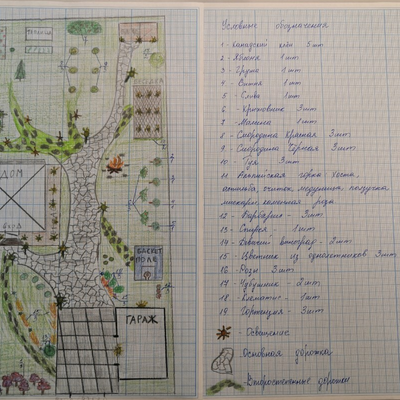 ДОМ
вход
ГАРАЖ
Условные обозначения
1 - Канадский клён 5 шт
2 - Яблоня 1 шт
3 - Груша 1 шт
4 - 1 шт
5 - Слива 1 шт
6 - Крыжовник 3 шт
7 - Малина 1 шт
8 - Смородина Красная 3 шт
9 - Смородина Чёрная 3 шт
10 - Туя 3 шт
11 - горка: хоста,
астильба, очиток, медуница,
роза
12 - Барбарис - 3 шт
13 - Спирея - 1 шт
14 - виноград - 2 шт
15 - Цветник из однолетников 3 шт
16 - Розы 3 шт
17 - Чубушник - 2 шт
18 - Клематис - 1 шт
19 - Гортензия - 3 шт
- Освещение
Основная дорожка
- Второстепенные дорожки